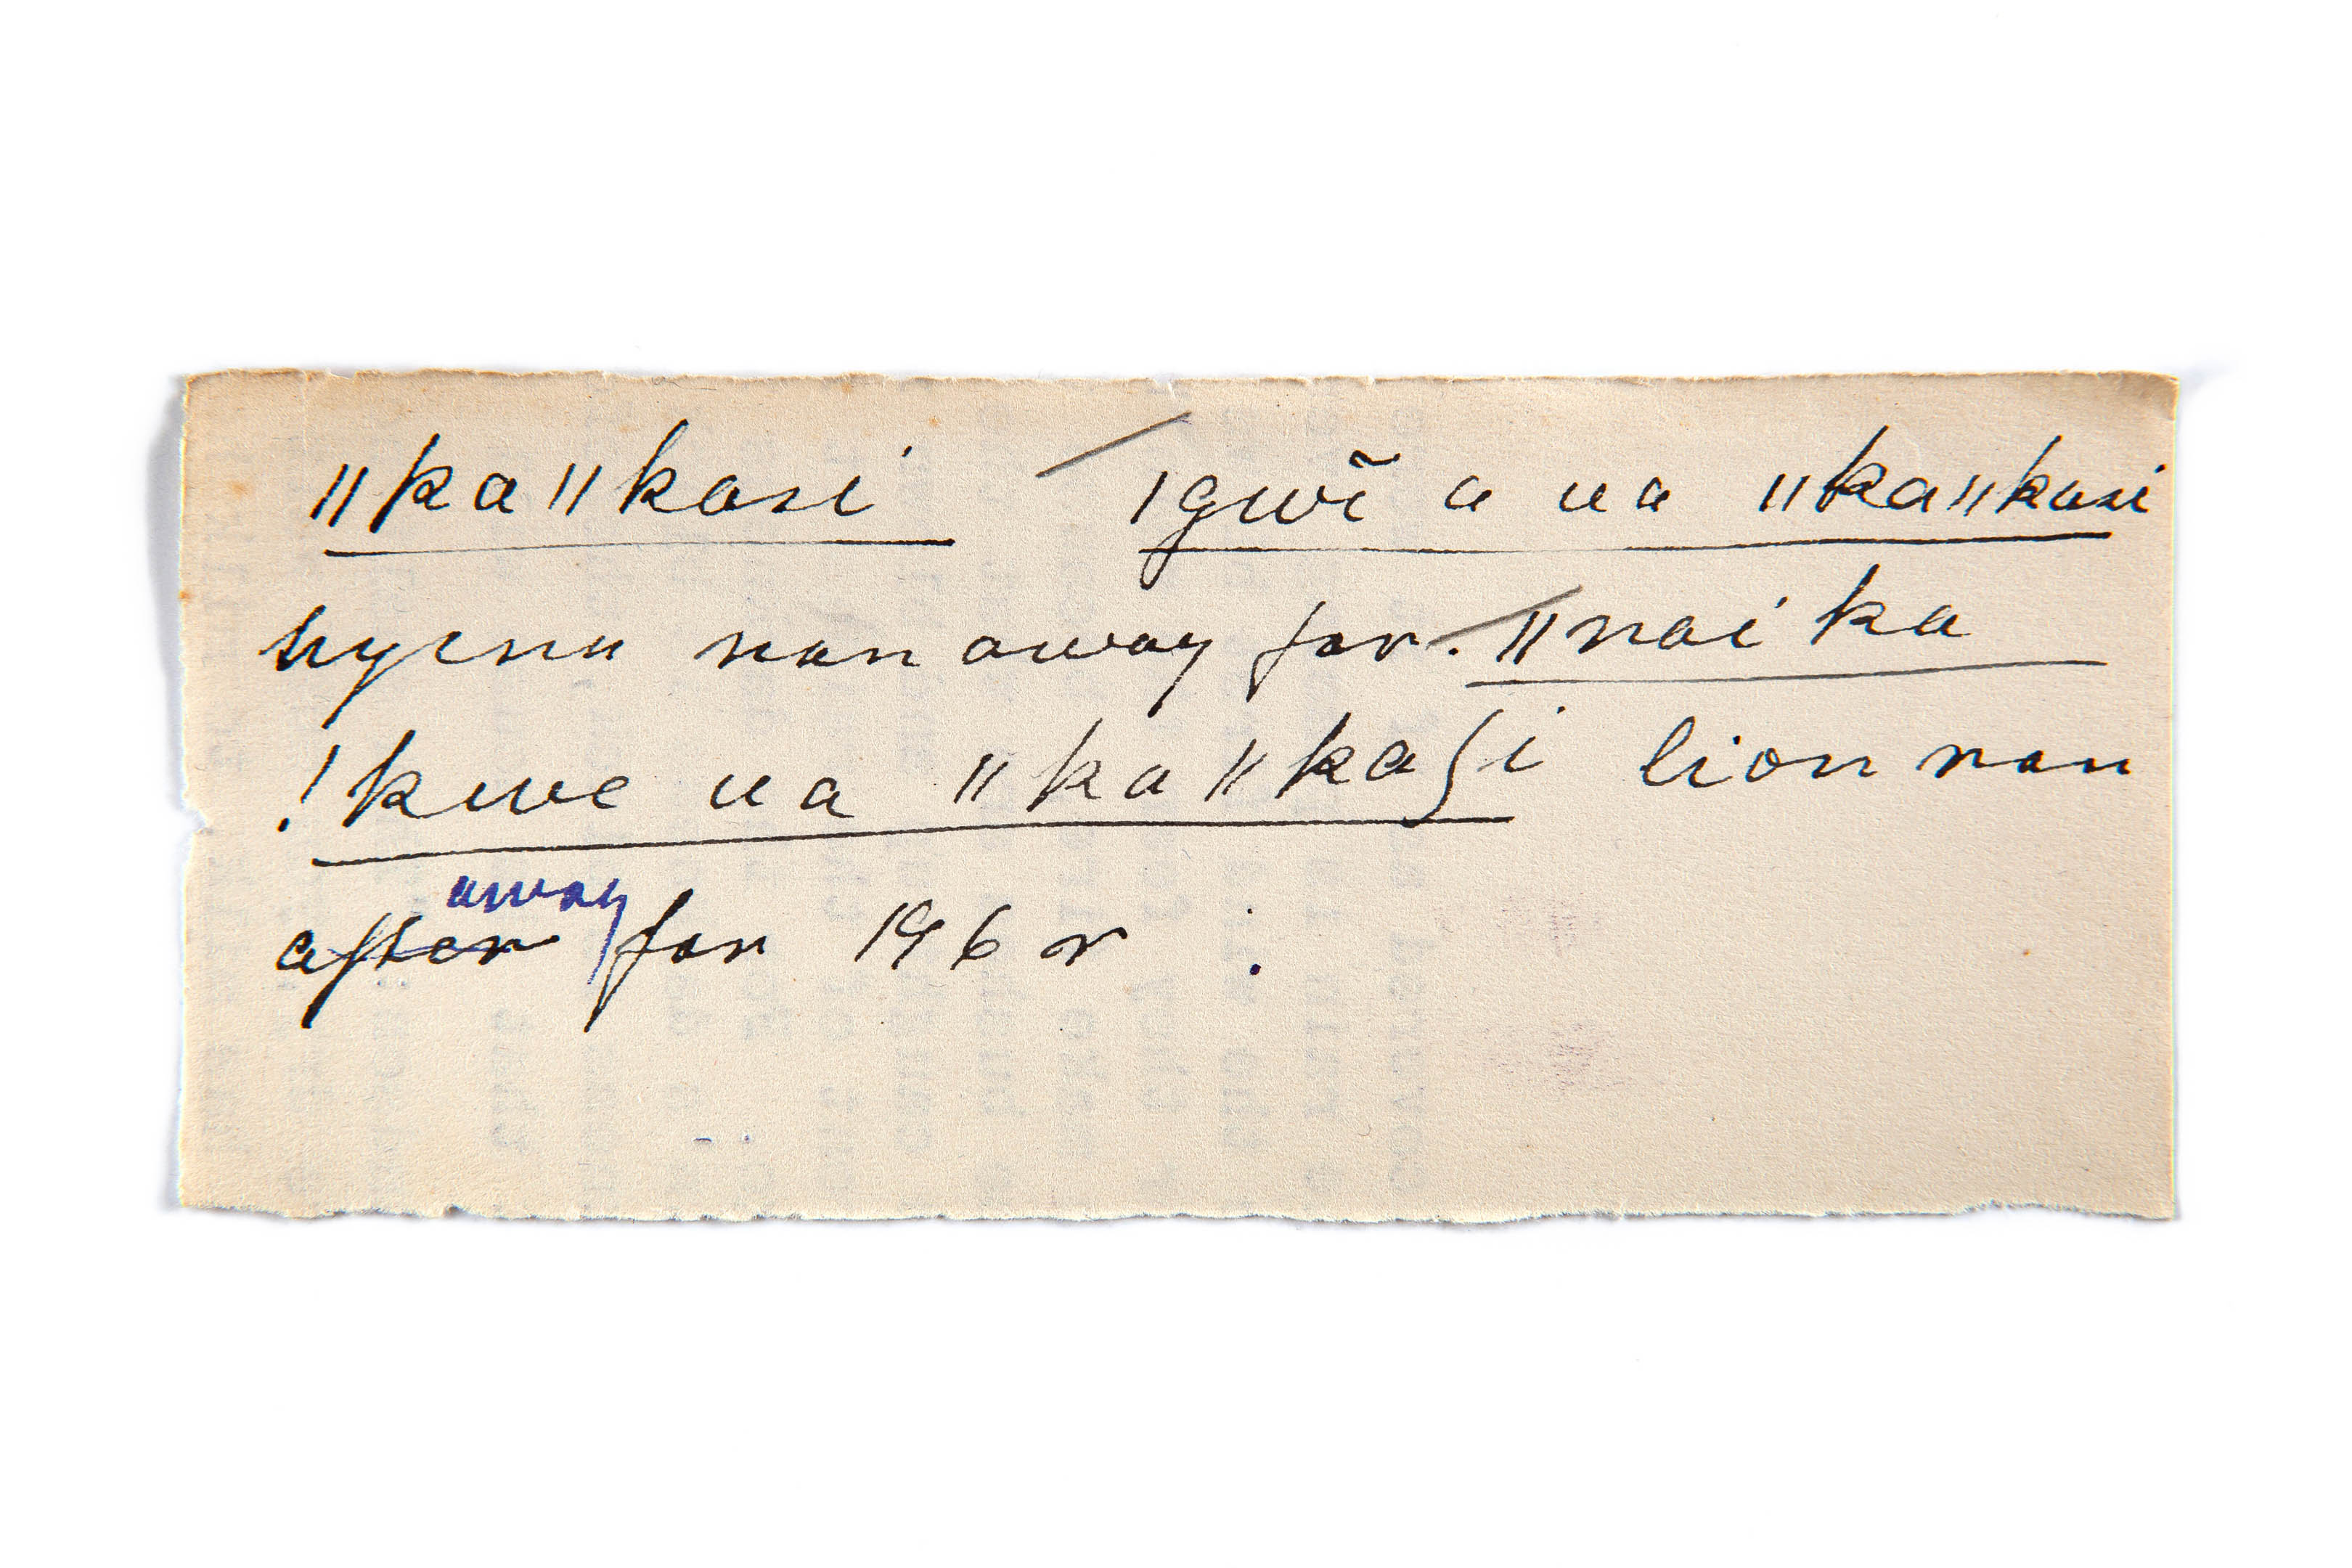 ǁkaǁkasi ǀgwĩ a ua ǁkaǁkasi
hyena ran away far. ǁnai ka
!kwe ua ǁkaǁkaʃi lion ran
after away far 196 r .